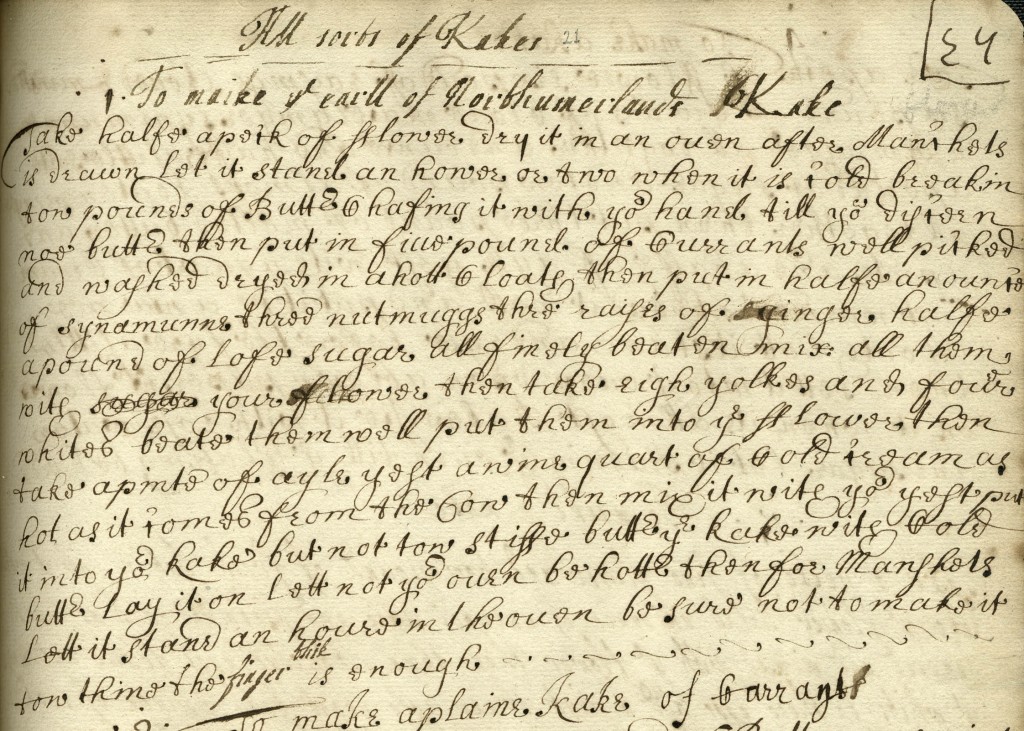 All sorts of Kakes 21
24
1 To make ye earll of Northumerlands Kake
Take halfe a peck of fflower dry it in an oven after Manchets
is drawn Let it stand an hower or two when it is cold break in
tow pounds of Butte Chafing it with yor hand till yor discern
noe butte then put in five pound of Currants well picked
and washed dryed in a hott Cloath then put in halfe an ounce
of synamunn three nutmuggs thre raises of ginger halfe
a pound of lofe sugar all finely beaten mix all them
with sugar your fflower then take eigh yolkes and fower
whites beate them well put them into ye fflower then
take a pinte of ayle yest a wine quart of Cold cream as
hot as it comes from the Cow then mix it with yor yest put
it into yor kake but not tow stiffe butte ye kake with Cold
butte Lay it on Lett not yor oven be hotte then for Manshets
Lett it stand an houre in the oven be sure not to make it
tow thine the finger thik is enough
To make a plaine Kake of Carrants